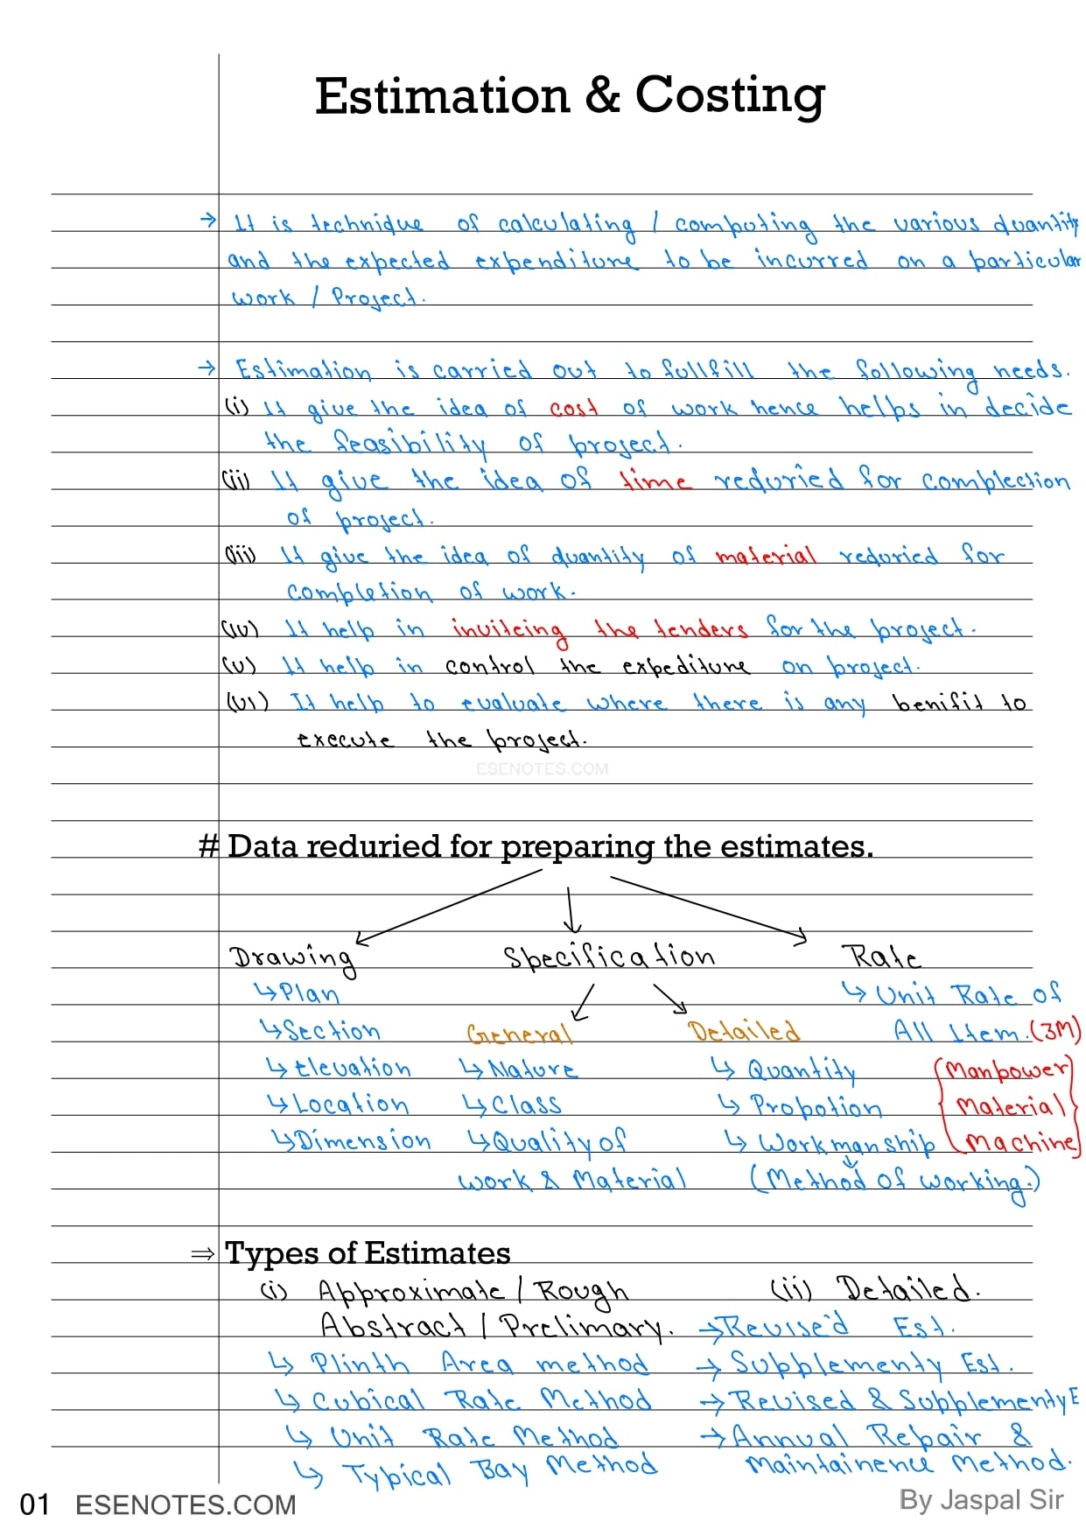 Estimation & Costing
→ It is technique of calculating / computing the various quantity
and the expected expenditure to be incurred on a particular
work / Project.
→ Estimation is carried out to fullfill the following needs.
(i) It give the idea of cost of work hence helps in decide
the feasibility of project.
(ii) It give the idea of time reduried for complection
of project.
(iii) It give the idea of quantity of material reduried for
completion of work.
(iv) It help in inviteing the tenders for the project.
(v) It help in control the expediture on project.
(vi) It help to evaluate where there is any benifit to
execute the project.
ESENOTES.COM
# Data reduried for preparing the estimates.
Drawing Specification Rate
↳ Plan ↳ Unit Rate of
↳ Section General Detailed All Item. (3M)
↳ Elevation ↳ Nature ↳ Quantity (Manpower
↳ Location ↳ Class ↳ Propotion Material
↳ Dimension ↳ Quality of ↳ Workmanship Machine)
work & Material (Method of working.)
⇒ Types of Estimates
(i) Approximate / Rough (ii) Detailed.
Abstract / Prelimary. → Revise'd Est.
↳ Plinth Area method → Supplementy Est.
↳ Cubical Rate Method → Revised & Supplementy E
↳ Unit Rate Method → Annual Repair &
↳ Typical Bay Method Maintainence Method.
01 ESENOTES.COM By Jaspal Sir